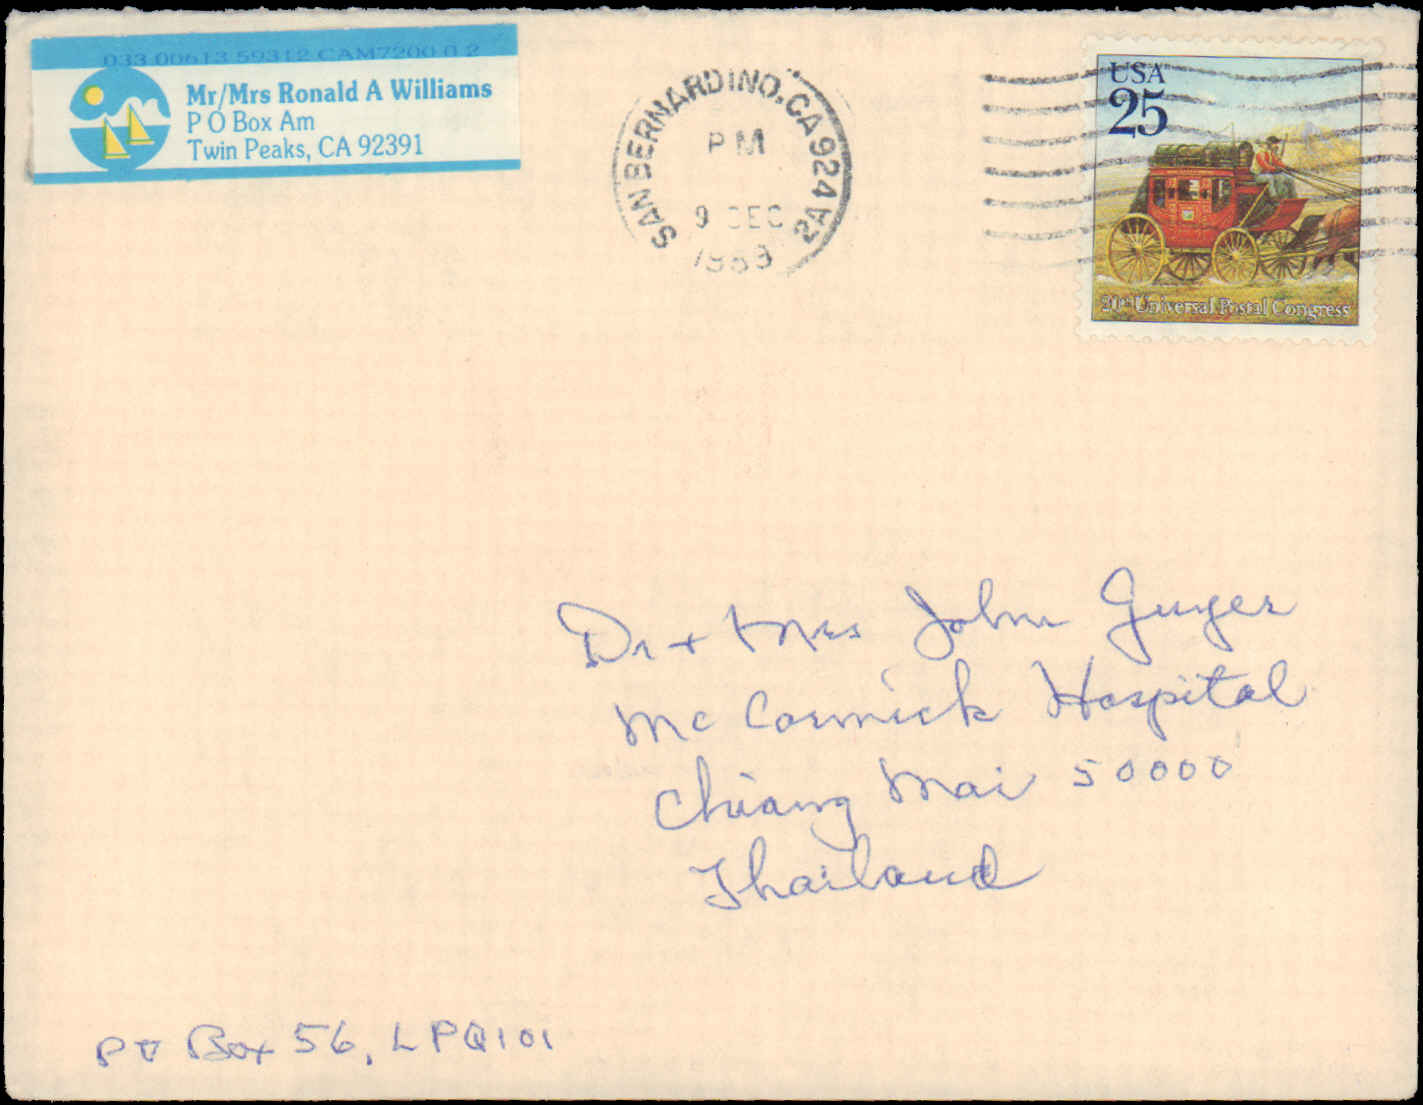 033 00613 59312 CAM7200 0 2
Mr/Mrs Ronald A Williams
P O Box Am
Twin Peaks, CA 92391
SAN BERNARDINO, CA 924
PM
9 DEC
USA
25
20th Universal Postal Congress
Dr + Mrs John Guyer
McCormick Hospital
Chiang Mai 50000
Thailand
PO Box 56, LPQ101